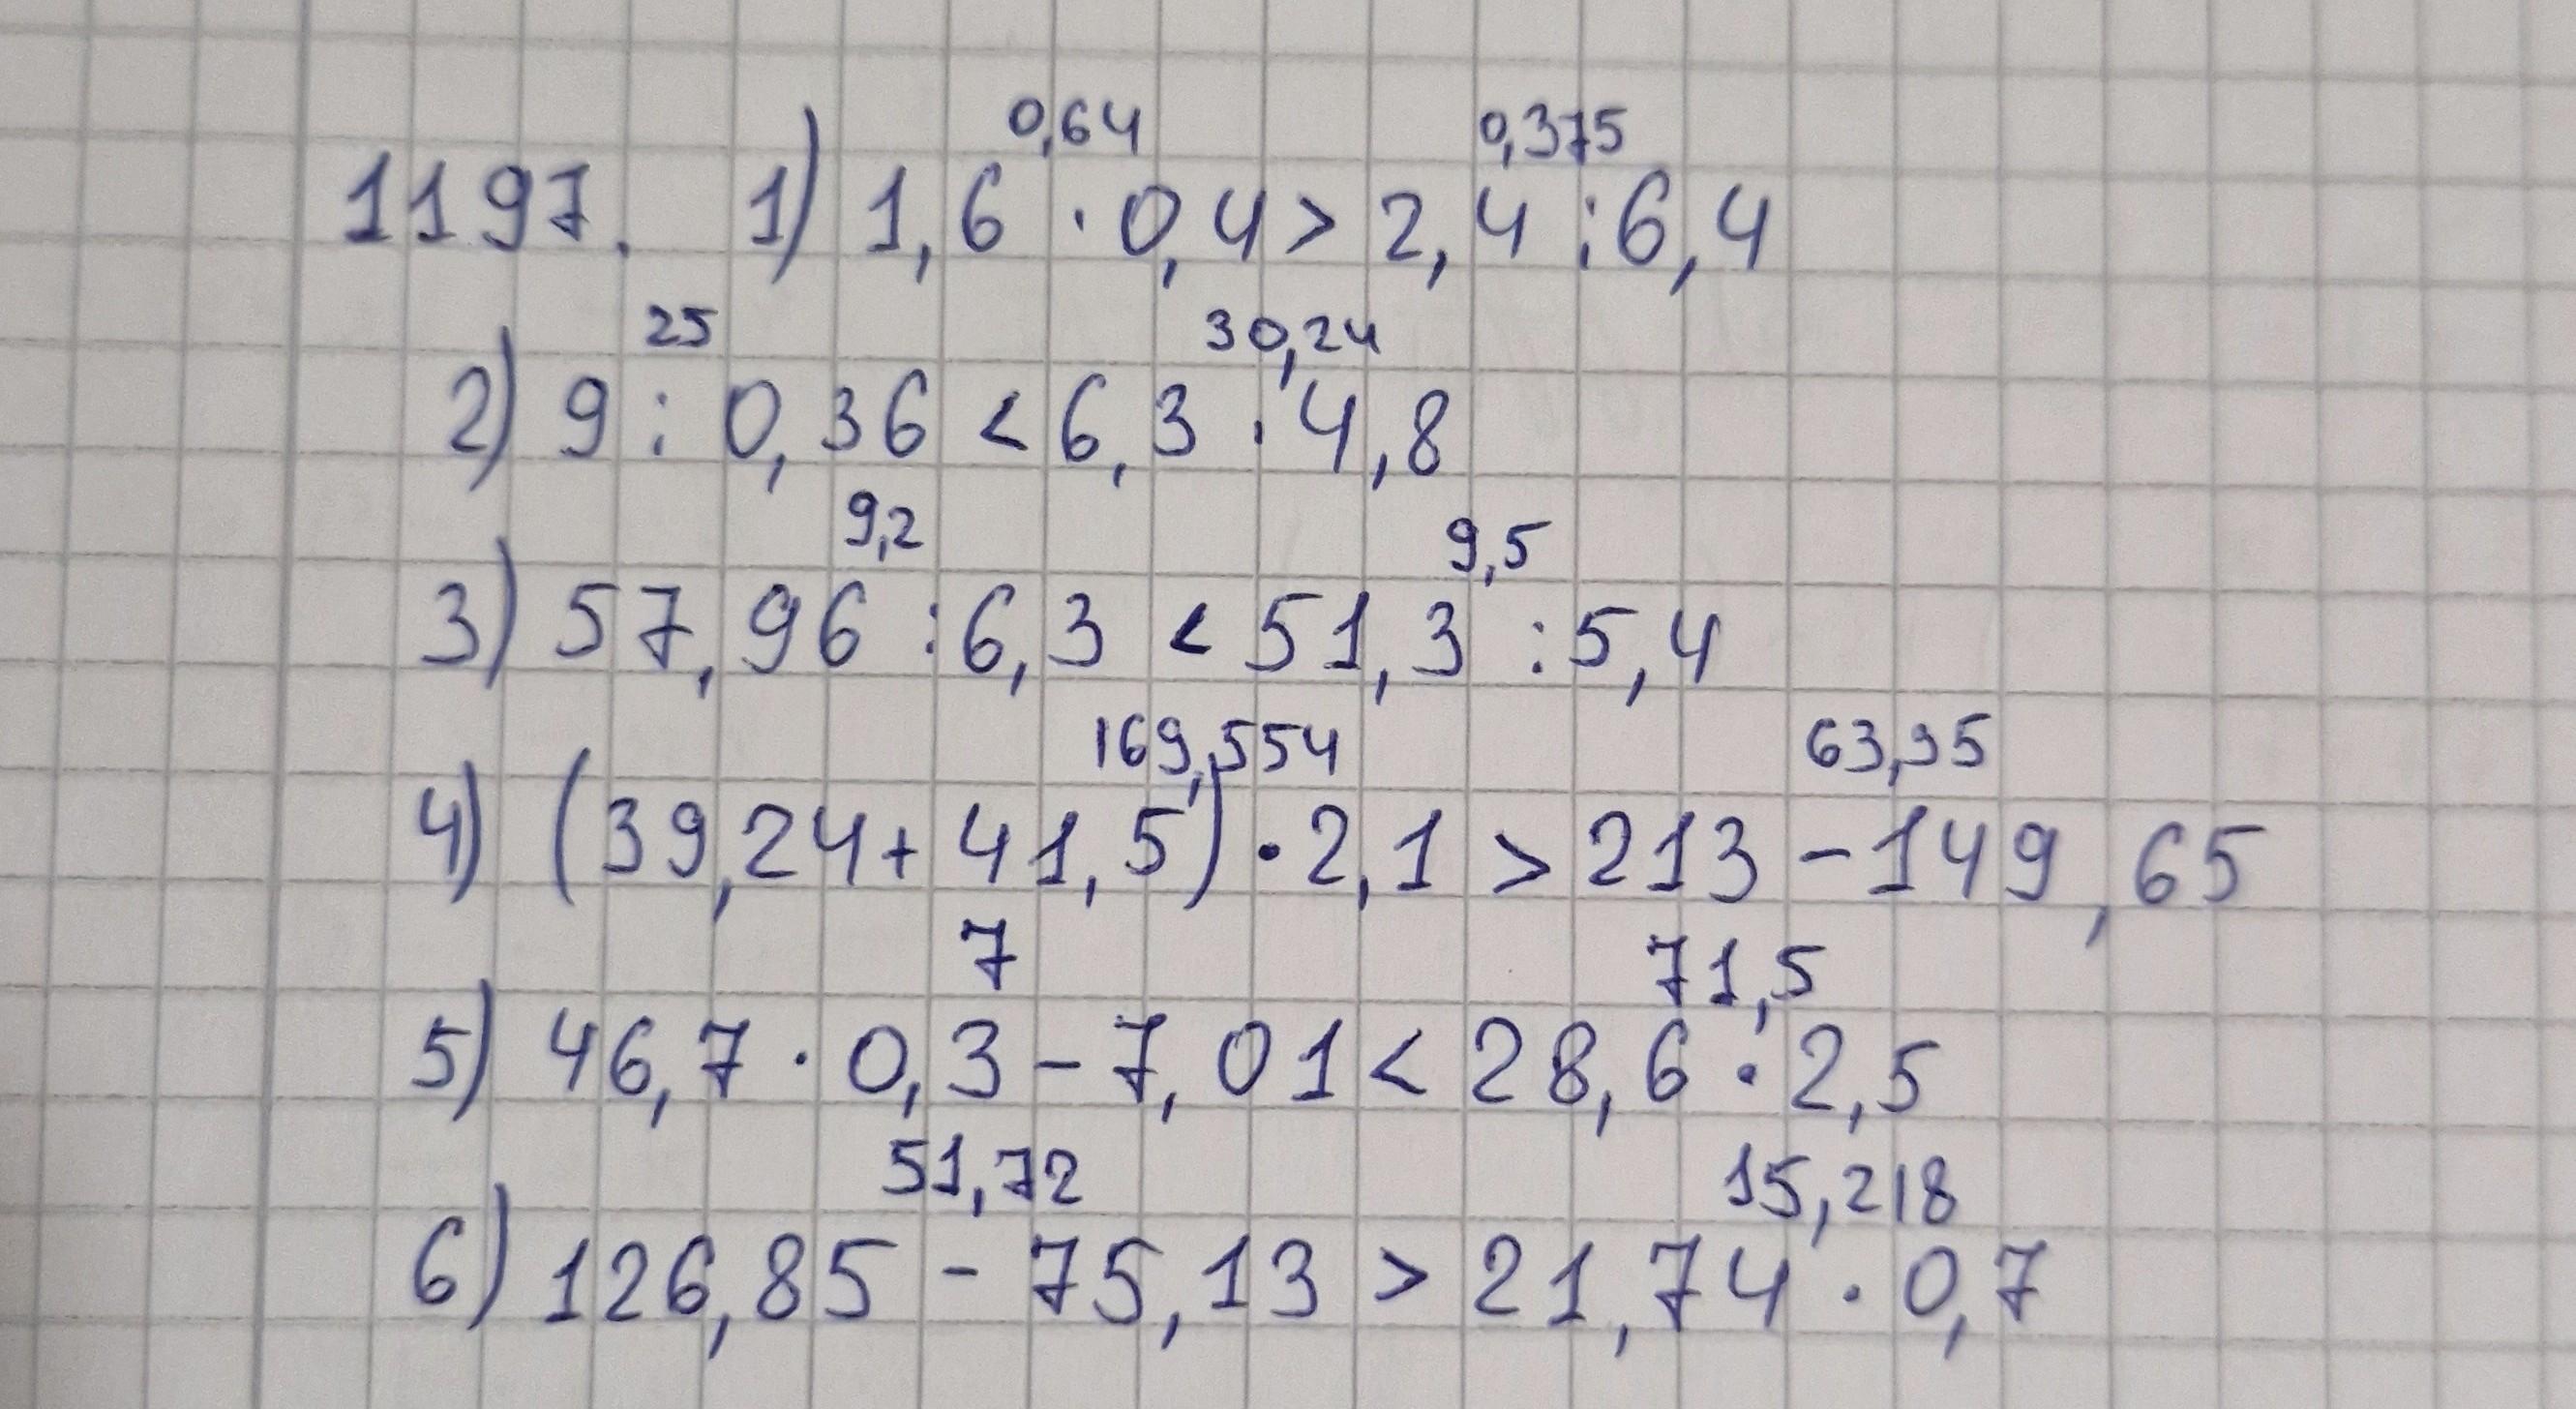 0,64 0,375
1197. 1) 1,6 · 0,4 > 2,4 : 6,4
25 30,24
2) 9 : 0,36 < 6,3 · 4,8
9,2 9,5
3) 57,96 : 6,3 < 51,3 : 5,4
169,554 63,95
4) (39,24 + 41,5) · 2,1 > 213 - 149,65
7 71,5
5) 46,7 · 0,3 - 7,01 < 28,6 · 2,5
51,72 15,218
6) 126,85 - 75,13 > 21,74 · 0,7